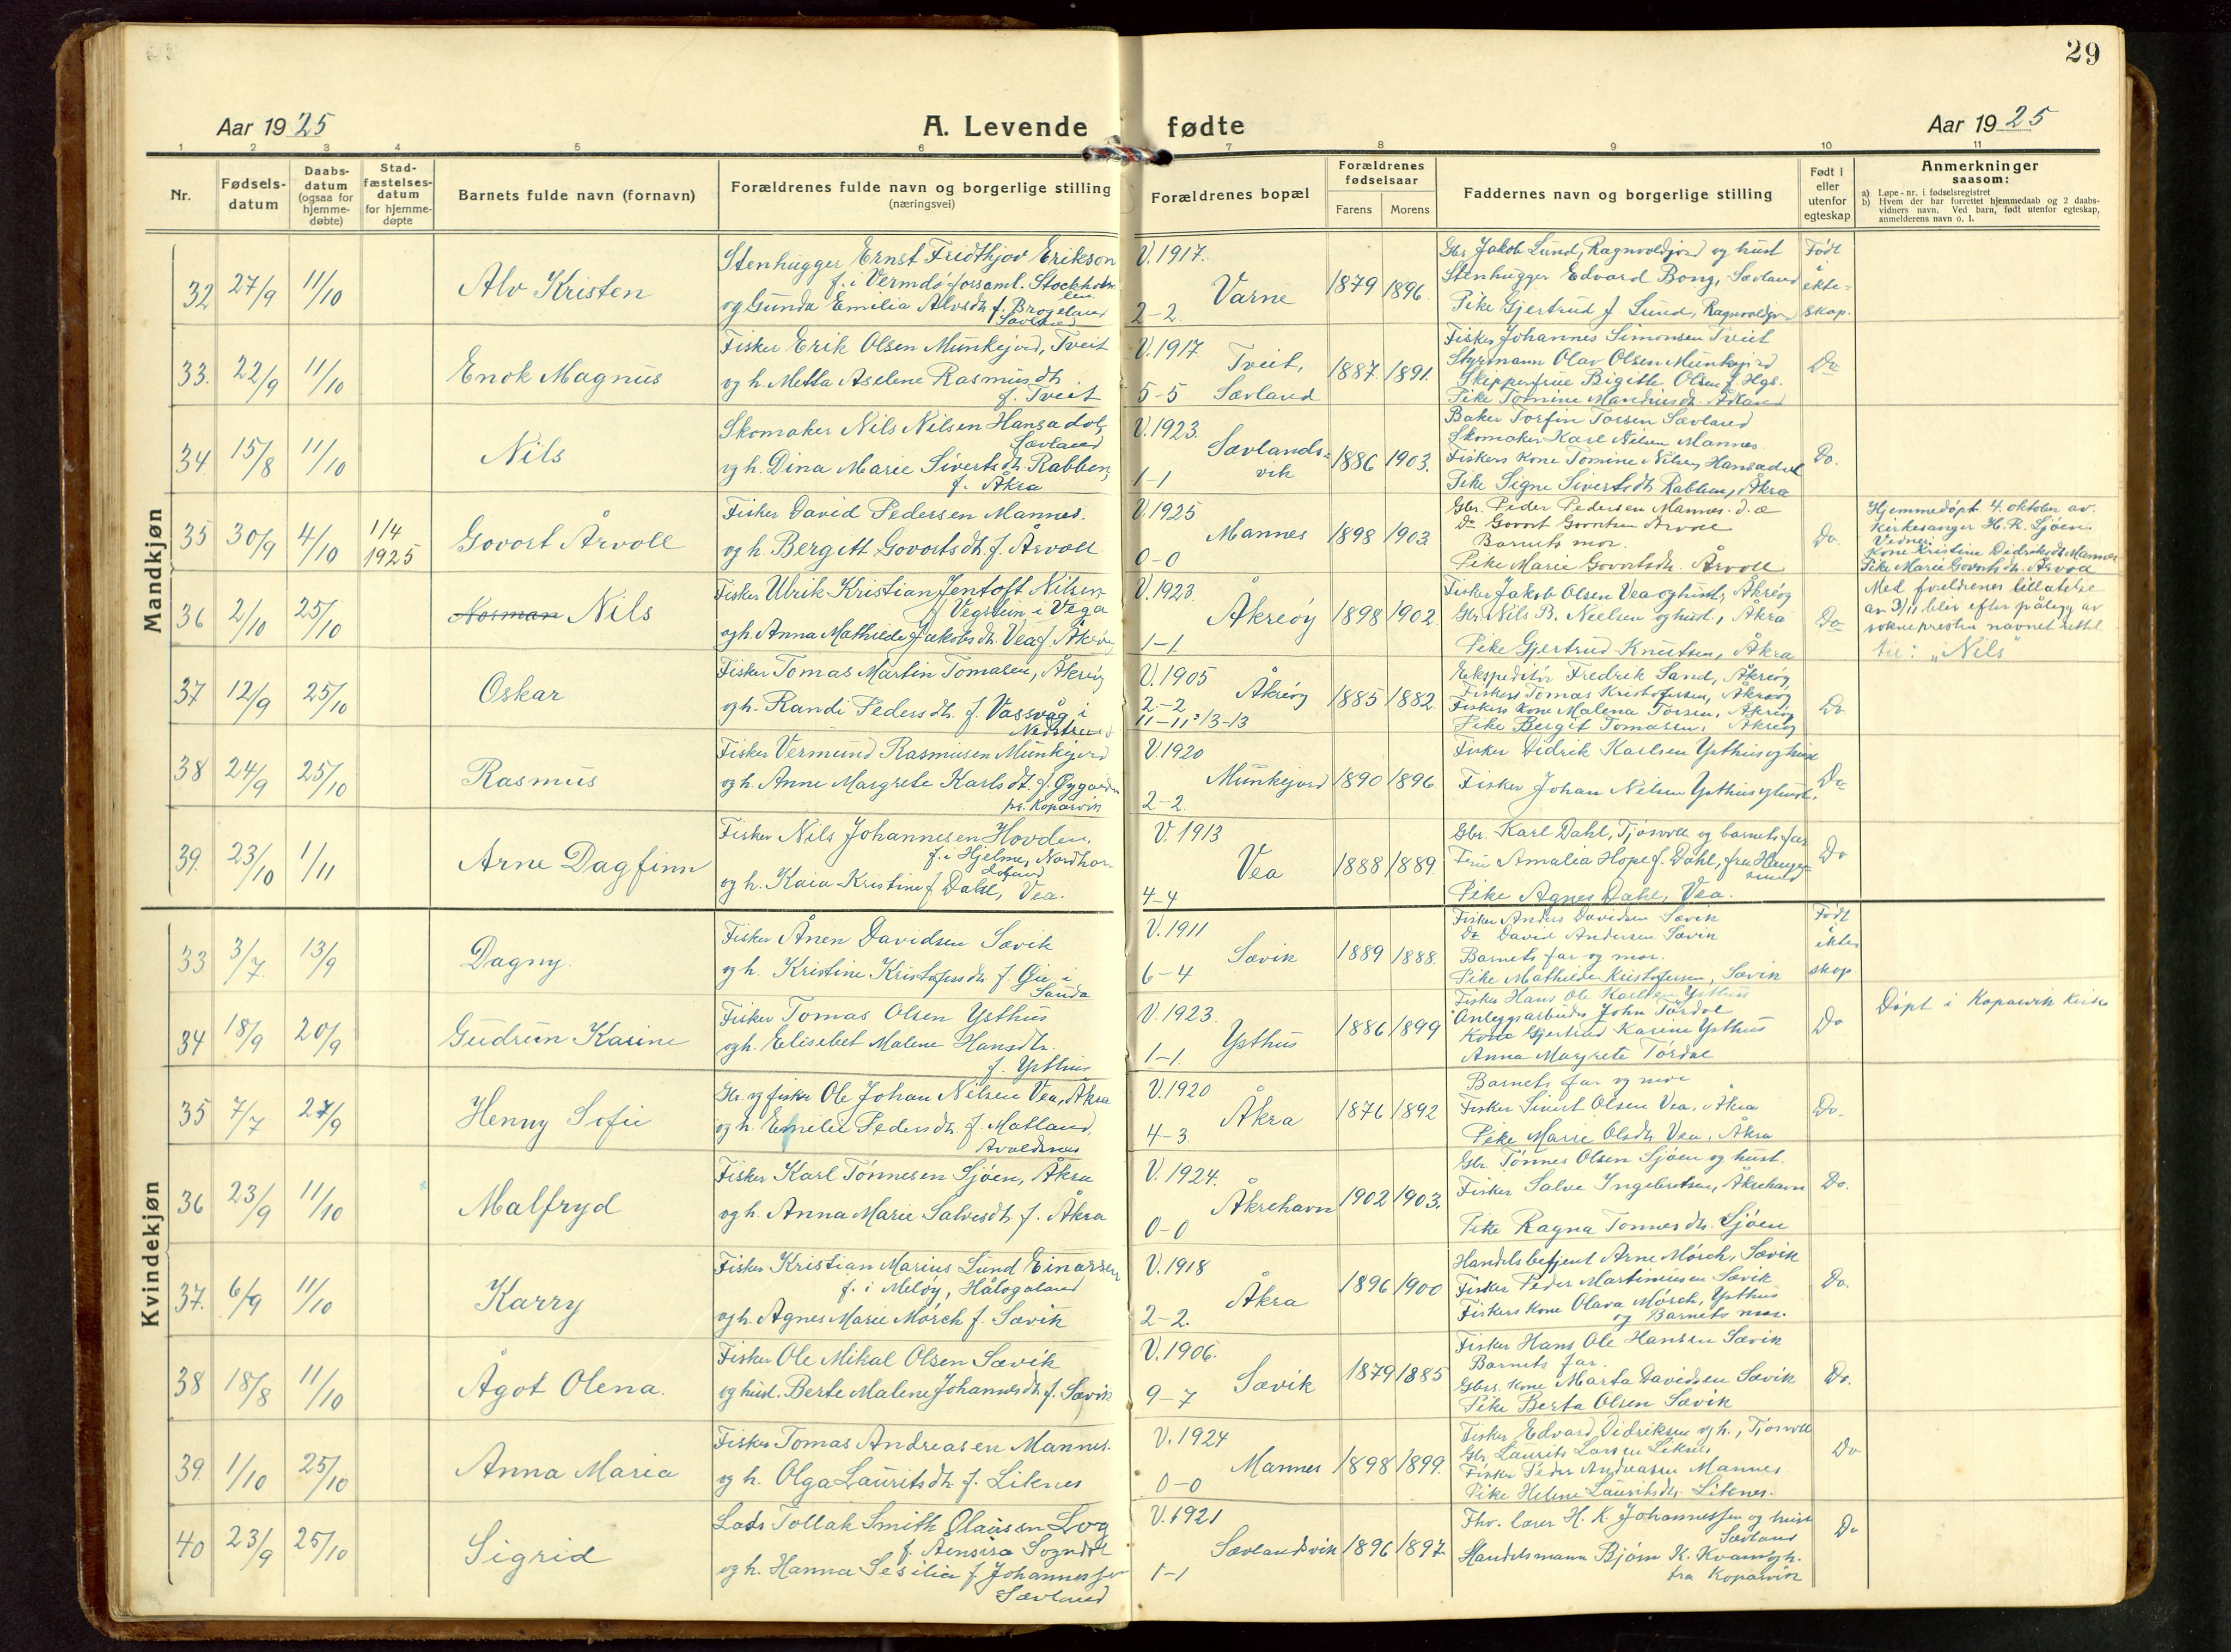 29
Aar 1925
A. Levende fødte
Aar 1925
1 2 3 4 5 6 7 8 9 10 11
Nr.
Fødsels-
datum
Daabs-
datum
(ogsaa for
hjemme-
døbte)
Stad-
fæstelses-
datum
for hjemme-
døpte
Barnets fulde navn (fornavn)
Forældrenes fulde navn og borgerlige stilling
(næringsvei)
Forældrenes bopæl
Forældrenes
fødselsaar
Farens
Morens
Faddernes navn og borgerlige stilling
Født i
eller
utenfor
egteskap
Anmerkninger
saasom:
a) Løpe-nr. i fødselsregistret
b) Hvem der har forrettet hjemmedaab og 2 daabs-
vidners navn. Ved barn, født utenfor egteskap,
anmelderens navn o. l.
Mandkjøn
32 27/9 11/10 Alv Kristen
Stenhugger Ernst Fridthjov Erikson
f. i Vermdö forsaml. Stockholm
len
og Gunda Emilia Alvsdtr f.
Sævland
V. 1917.
Varne
2-2
1879 1896.
Gbr. Jakob Lund, Ragnvoldjord og hust
Stenhugger Edvard Bong, Sævland
Pike Gjertrud J. Lund,
Født
i
ekte-
skap.
33. 22/9 11/10 Enok Magnus
Fisker Erik Olsen Munkejord, Tveit
og h. Metta Aselene Rasmusdtr
f. Tveit
V. 1917.
Tveit,
5-5 Sævland
1887. 1891.
Fisker Johannes Simonsen Tveit
Styrmann Olav Olsen Munkejord
Skipperfrue Bigitte Olsen f. Hgs.
Pike Tomine
Do
34 15/8 11/10 Nils
Skomaker Nils Nilsen Hansadal,
Sævland
og h. Dina Marie Sivertsdtr Rabben,
f. Åkra
V. 1923.
Sævlands-
vik
1-1
1886 1903.
Baker Torfin Torsen Sævland
Skomaker Karl Nilsen Mannes
Fiskers kone Tomine Nilsen Hansadal
Pike Signe Sivertsdtr Rabben, Åkra
Do.
35 30/9 4/10 1/4
1925
Govort Årvoll
Fisker David Pedersen Mannes.
og h. Bergitt Govortsdtr. f. Årvoll
V. 1925
Mannes
0-0
1898 1903
Gbr. Peder Pedersen Mannes. d. e
Do Govort Govortsen Årvoll
Barnets mor.
Pike Marie Govortsdtr. Årvoll
Do.
Hjemmedøpt 4. oktober av
kirkesanger H. R. Sjøen.
Vidner:
Kone Kristine Didriksdtr Mannes
Pike Marie Govortsdtr. Årvoll
36 2/10 25/10 Norman Nils
Fisker Ulrik Kristian Jentoft Nilsen
f. Vegstein i Vega
og h. Anna Mathilde Jakobsdtr. Vea f. Åkreøy
V. 1923
Åkreöy
1-1
1898 1902
Fisker Jakob Olsen Vea og hust., Åkreöy
Gbr. Nils B. Neelsen og hust., Åkra
Pike Gjertrud Knutsen, Åkra
Do
Med foreldrenes tillatelse
av 3/11 blir efter pålegg av
sokneprestn navnet rettet
til: „Nils"
37 12/9 25/10 Oskar
Fisker Tomas Martin Tomasen, Åkreöy
og h. Randi Pedersdtr. f. Vassvåg i
Nedstrand
V. 1905
Åkreöy
2-2
11-11 13-13
1885 1882.
Ekspeditör Fredrik Sand, Åkreöy
Fiskers Tomas Kristofersen, Åkreöy
Fiskers kone Malena Torsen, Åkreöy
Pike Bergit Tomasen, Åkreöy
Do
38 24/9 25/10 Rasmus
Fisker Vermund Rasmusen Munkejord
og h. Anne Margrete Karlsdtr. f. Øygarden
pr. Kopervik
V. 1920
Munkejord
2-2.
1890 1896.
Fisker Didrik Karlsen Ysthus og hust
Fisker Johan Nilsen Ysthus og hust.
Do
39. 23/10 1/11 Arne Dagfinn
Fisker Nils Johannesen Hovden,
f. i Hjelme, Nordhor-
doland
og h. Kaia Kristine f. Dahl, Vea.
V. 1913
Vea
4-4
1888 1889.
Gbr. Karl Dahl, Tjösvoll og barnets far
Fru Amalia Hope f. Dahl, fra Hauge-
sund
Pike Agnes Dahl, Vea.
Do
Kvindekjøn
33 3/7. 13/9 Dagny.
Fisker Ånen Davidsen Sævik
og h. Kristine Kristofersdtr f. Øie i
Sauda
V. 1911
Sævik
6-4
1889 1888.
Fisker Anders Davidsen Sævik
Do David Andersen Sævik
Barnets far og mor.
Pike Mathilde Kristofersen, Sævik
Født
i
ekte
skap
34 18/9 20/9 Gudrun Karine
Fisker Tomas Olsen Ysthus
og h. Elisebet Malene Hansdtr.
f. Ysthus
V. 1923.
Ysthus
1-1.
1886 1899
Fisker Hans Ole Karlsen Ysthus
Anleggsarbeider John Tórdal
Kone Gjertrud Karine Ysthus
Anna Margrete Tórdal
Do
Døpt i Kopervik Kirke
35 7/7 27/9 Henny Sofie
Gbr. og fisker Ole Johan Nilsen Vea, Åkra
og h. Emilie Pedersdtr. f. Matland,
Avaldsnes
V. 1920
Åkra
4-3.
1876 1892
Barnets far og mor
Fisker Sivert Olsen Vea, Åkra
Pike Marie Olsdtr Vea, Åkra
Do.
36 23/9 11/10 Malfryd
Fisker Karl Tönnesen Sjöen, Åkra
og h. Anna Marie Salvesdtr. f. Åkra
V. 1924.
Åkrehavn
0-0
1902 1903.
Gbr. Tönnes Olsen Sjöen og hust.
Fisker Salve Ingebretsen, Åkrehavn
Pike Ragna Tonnesdtr. Sjöen
Do.
37. 6/9 11/10 Karry
Fisker Kristian Marius Lund Einarsen
f. i Melöy, Hålogaland
og h. Agnes Marie Mörch f. Sævik
V. 1918
Åkra
2-2.
1896 1900
Handelsbetjent Arne Mörch, Sævik
Fisker Peder Martiniusen Sævik
Fiskers kone Olava Mörch, Ysthus
og Barnets mor.
Do.
38 18/8 11/10 Ågot Olena.
Fisker Ole Mikal Olsen Sævik
og hust. Berte Malene Johannesdtr f. Sævik
V. 1906.
Sævik
9-7
1879 1885
Fisker Hans Ole Hansen Sævik
Barnets far.
Gbrs. kone Marta Davidsen Sævik
Pike Berta Olsen Sævik
Do.
39. 1/10 25/10 Anna Maria
Fisker Tomas Andreasen Mannes.
og h. Olga Lauritsdtr. f. Liknes
V. 1924
Mannes
0-0
1898 1899.
Fisker Edvard Didriksen og h., Tjösvoll
Gbr. Laurits Larsen Liknes
Fisker Peder Andreasen Mannes.
Pike Helene Lauritsdtr. Liknes.
Do
40 23/9 25/10 Sigrid
Lods Tollak Smith Olausen Log
f. Åensira Sogndal
og h. Hanna Sesilia f. Johannessen
Sævland
V. 1921
Sævlandsvik
1-1
1896 1897.
Fhv. lærer H. K. Johannessen og hust
Sævland
Handelsmann Bjørn K. Kvam og h.
fra Kopervik
Do